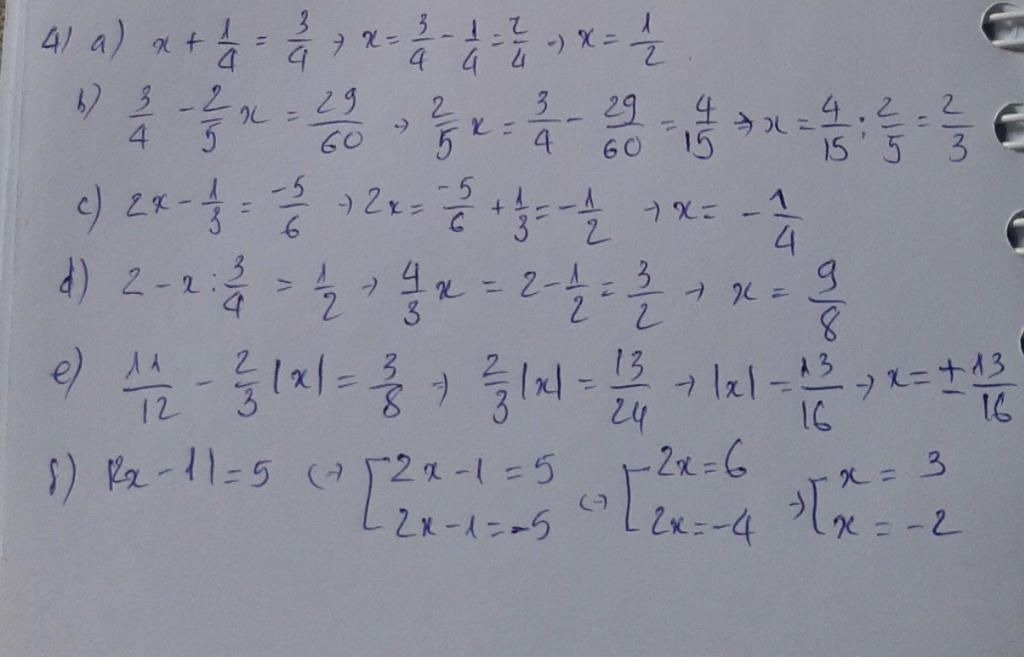 4) a) x + 1/4 = 3/4 → x = 3/4 - 1/4 = 2/4 → x = 1/2
b) 3/4 - 2/5 x = 29/60 → 2/5 x = 3/4 - 29/60 = 4/15 → x = 4/15 : 2/5 = 2/3
c) 2x - 1/3 = -5/6 → 2x = -5/6 + 1/3 = -1/2 → x = -1/4
d) 2 - x : 3/4 = 1/2 → 4/3 x = 2 - 1/2 = 3/2 → x = 9/8
e) 11/12 - 2/3 |x| = 3/8 → 2/3 |x| = 13/24 → |x| = 13/16 → x = ± 13/16
f) |2x - 1| = 5 ↔ [ 2x - 1 = 5 ↔ [ 2x = 6 → [ x = 3
2x - 1 = -5 2x = -4 x = -2